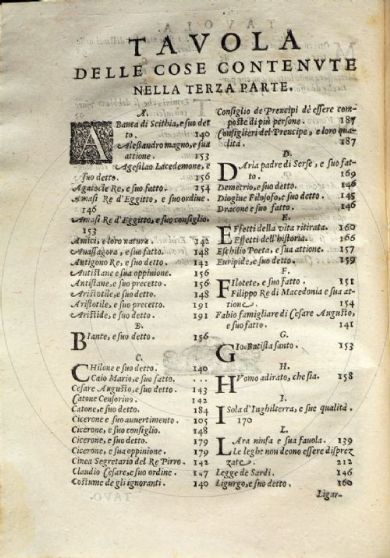 TAVOLA
DELLE COSE CONTENVTE
NELLA TERZA PARTE.
A.
ABanta di Scithia, e suo det
to. 140
Alessandro magno, e sua
attione. 153
Agesilao Lacedemone, e
suo detto. 156
Agatocle Re, e suo fatto. 154
Amasi Re d'Eggitto, e suo ordine.
146
Amasi Re d'Eggitto, e suo consiglio.
153
Amici, e loro natura. 142
Anassagora, e suo fatto. 148
Antigono Re, e suo detto. 142
Antistane e sua oppinione. 156
Antistane, e suo precetto. 156
Aristotile, e suo detto. 148
Aristotile, e suo fatto. 191
Aristide, e suo detto. 191
B.
BIante, e suo detto. 156
C.
CHilone e suo detto. 140
Caio Mario, e suo fatto.
Cesare Augusto, e suo detto. 143
Catone Censorino. 142
Catone, e suo detto. 184
Cicerone e suo auuertimento. 105
Cicerone, e suo consiglio. 148
Cicerone, e suo detto. 179
Cicerone, e sua oppinione. 179
Cinea Segretario del Re Pirro. 142
Claudio Cesare, e suo ordine. 147
Costume de gli ignoranti. 140
Consiglio de Prencipi dè essere com-
poste di più persone. 187
Consiglieri del Prencipe, e loro qua
lità. 187
D.
DAria padre di Serse, e suo fat-
to. 169
Demetrio, e suo detto. 146
Diogine Filosofo, e suo detto. 145
Dracone e suo fatto. 146
E.
EFfetti della vita ritirata. 160
Effetti dell'historia. 166
Eschilio Poeta, e sua attione. 157
Euripide, e suo detto. 159
F.
FIlotete, e suo fatto. 151
Filippo Re di Macedonia e sua at-
tione. 154
Fabio famigliare di Cesare Augusto,
e suo fatto. 141
G.
GIo. Batista santo. 153
H.
HVomo adirato, che sia. 158
I.
ISola d'Inghilterra, e sue qualità.
170
L.
LAra ninfa e sua fauola. 139
Le leghe non deono essere disprez
zate. 212
Legge de Sardi. 146
Ligurgo, e suo detto. 160
Ligur-